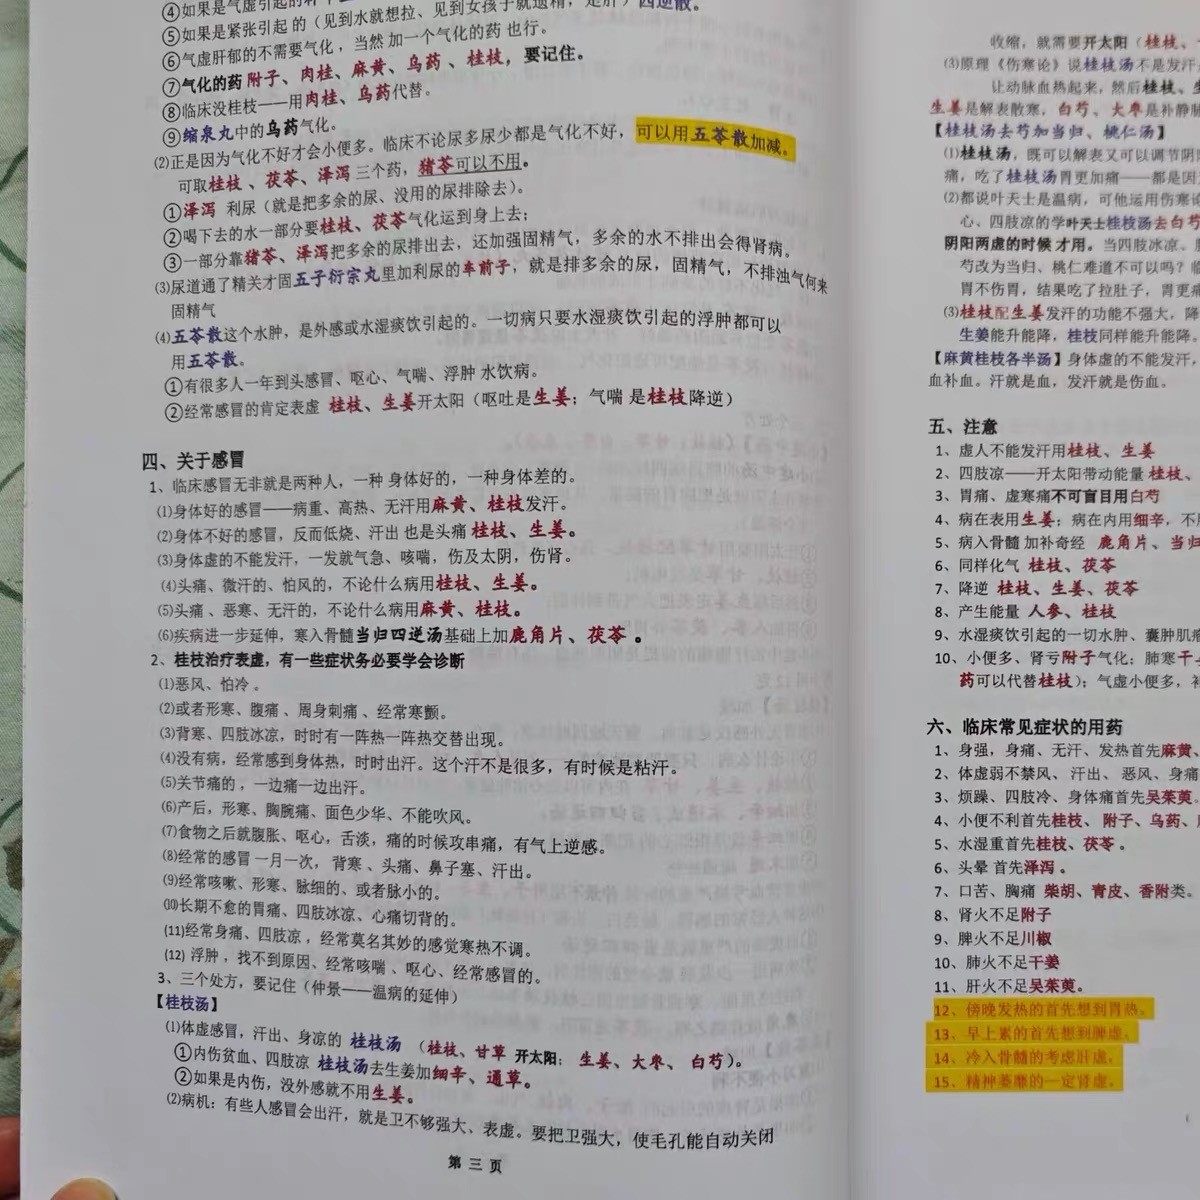 ④如果是气虚引起的
四逆散。
⑤如果是紧张引起 的（见到水就想拉、见到女孩子就遗精，是肝）
⑥气虚肝郁的不需要气化 ，当然 加一个气化的药 也行。
⑦气化的药 附子、肉桂、麻黄、乌药 、桂枝，要记住。
⑧临床没桂枝——用肉桂、乌药代替。
⑨缩泉丸中的乌药气化。
⑵正是因为气化不好才会小便多。临床不论尿多尿少都是气化不好，可以用五苓散加减。
可取桂枝 、茯苓、泽泻 三个药，猪苓可以不用。
①泽泻  利尿（就是把多余的尿、没用的尿排除去）。
②喝下去的水一部分要桂枝、茯苓气化运到身上去；
③一部分靠猪苓、泽泻把多余的尿排出去，还加强固精气，多余的水不排出会得肾病。
⑶尿道通了精关才固五子衍宗丸里加利尿的车前子，就是排多余的尿，固精气，不排浊气何来
固精气
⑷五苓散这个水肿，是外感或水湿痰饮引起的。一切病只要水湿痰饮引起的浮肿都可以
用五苓散。
①有很多人一年到头感冒、呕心、气喘、浮肿 水饮病。
②经常感冒的肯定表虚  桂枝、生姜开太阳（呕吐是生姜；气喘 是桂枝降逆）
四、关于感冒
1、临床感冒无非就是两种人，一种 身体好的，一种身体差的。
⑴身体好的感冒——病重、高热、无汗用麻黄、桂枝发汗。
⑵身体不好的感冒，反而低烧、汗出 也是头痛 桂枝、生姜。
⑶身体虚的不能发汗，一发就气急、咳喘，伤及太阴，伤肾。
⑷头痛、微汗的、怕风的，不论什么病用桂枝、生姜。
⑸头痛 、恶寒、无汗的，不论什么病用麻黄、桂枝。
⑹疾病进一步延伸，寒入骨髓当归四逆汤基础上加鹿角片、茯苓 。
2、桂枝治疗表虚，有一些症状务必要学会诊断
⑴恶风、怕冷 。
⑵或者形寒、腹痛 、周身刺痛 、经常寒颤。
⑶背寒、四肢冰凉，时时有一阵热一阵热交替出现。
⑷没有病，经常感到身体热，时时出汗。这个汗不是很多，有时候是粘汗。
⑸关节痛的 ，一边痛一边出汗。
⑹产后，形寒、胸腕痛、面色少华、不能吹风。
⑺食物之后就腹胀、呕心，舌淡，痛的时候攻串痛，有气上逆感。
⑻经常的感冒 一月一次， 背寒 、头痛、鼻子塞、汗出。
⑼经常咳嗽、形寒、脉细的、或者脉小的。
⑽长期不愈的胃痛、四肢冰凉、心痛切背的。
(11)经常身痛、四肢凉 ，经常莫名其妙的感觉寒热不调。
(12) 浮肿 ，找不到原因、经常咳喘 、呕心、经常感冒的。
3、三个处方，要记住（仲景——温病的延伸）
【桂枝汤】
⑴体虚感冒，汗出、身凉的  桂枝汤 （桂枝、甘草 开太阳； 生姜、大枣、 白芍）。
①内伤贫血、四肢凉  桂枝汤去生姜加细辛、通草。
②如果是内伤，没外感就不用生姜。
⑵病机：有些人感冒会出汗，就是卫不够强大、表虚。要把卫强大，使毛孔能自动关闭
第 三 页
收缩，就需要开太阳（桂枝、
⑶原理《伤寒论》说桂枝汤不是发汗
让动脉血热起来，然后桂枝、
生姜是解表散寒，白芍、大枣是补静
【桂枝汤去芍加当归、桃仁汤】
⑴桂枝汤，既可以解表又可以调节阴
痛，吃了桂枝汤胃更加痛——都是因
⑵都说叶天士是温病，可他运用伤寒
心、四肢凉的学叶天士桂枝汤去白芍
阴阳两虚的时候 才用。当四肢冰凉。
芍改为当归、桃仁难道不可以吗？
胃不伤胃，结果吃了拉肚子，胃更
⑶桂枝配生姜发汗的功能不强大，降
生姜能升能降，桂枝同样能升能降。
【麻黄桂枝各半汤】身体虚的不能发汗，
血补血。汗就是血，发汗就是伤血。
五、注意
1、虚人不能发汗用桂枝、生姜
2、四肢凉——开太阳带动能量 桂枝、
3、胃痛、虚寒痛不可盲目用白芍
4、病在表用生姜；病在内用细辛，不
5、病入骨髓 加补奇经  鹿角片、当归
6、同样化气  桂枝、茯苓
7、降逆  桂枝、生姜、茯苓
8、产生能量  人参、桂枝
9、水湿痰饮引起的一切水肿、囊肿肌
10、小便多、肾亏附子气化；肺寒干
药可以代替桂枝）；气虚小便多，
六、临床常见症状的用药
1、身强，身痛、无汗、发热首先麻黄、
2、体虚弱不禁风、 汗出、 恶风、身痛
3、烦躁、四肢冷、身体痛首先吴茱萸。
4、小便不利首先桂枝、 附子、乌药、
5、水湿重首先桂枝、茯苓 。
6、头晕 首先泽泻 。
7、口苦、胸痛  柴胡、青皮、香附类。
8、肾火不足附子
9、脾火不足川椒
10、肺火不足干姜
11、肝火不足吴茱萸。
12、傍晚发热的首先想到胃热。
13、早上累的首先想到脾虚。
14、冷入骨髓的考虑肝虚。
15、精神萎靡的一定肾虚。